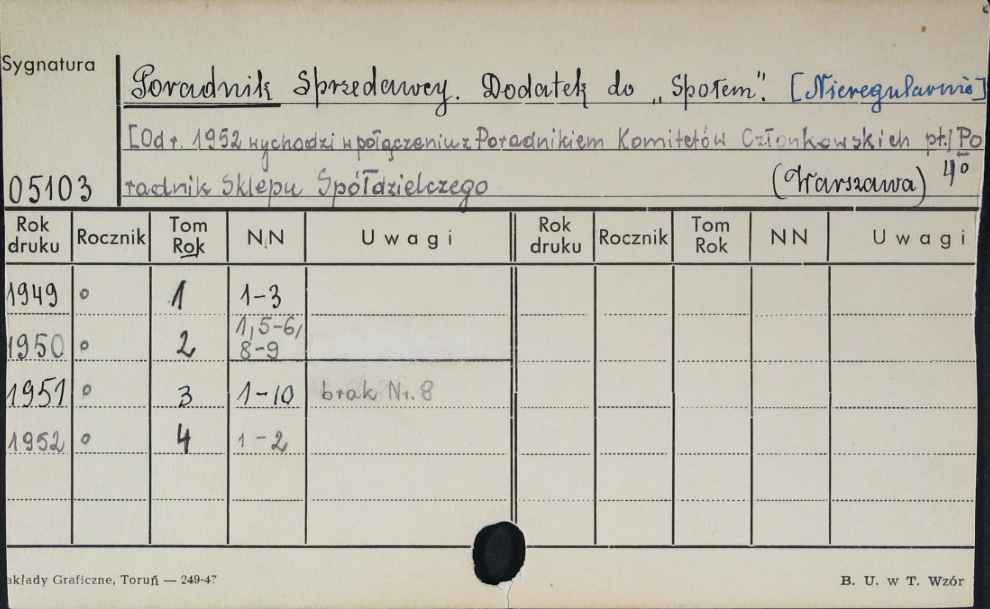 Sygnatura
Poradnik Sprzedawcy. Dodatek do „Społem". [Nieregularnie]
[Od r. 1952 wychodzi w połączeniu z Poradnikiem Komitetów Członkowskich pt./Po
05103 radnik Sklepu Spółdzielczego (Warszawa) 4°
Rok druku Rocznik Tom Rok NN Uwagi Rok druku Rocznik Tom Rok NN Uwagi
1949 o 1 1-3
1950 o 2 1,5-6, 8-9
1951 o 3 1-10 brak Nr. 8
1952 o 4 1-2
akłady Graficzne, Toruń — 249-47 B. U. w T. Wzór